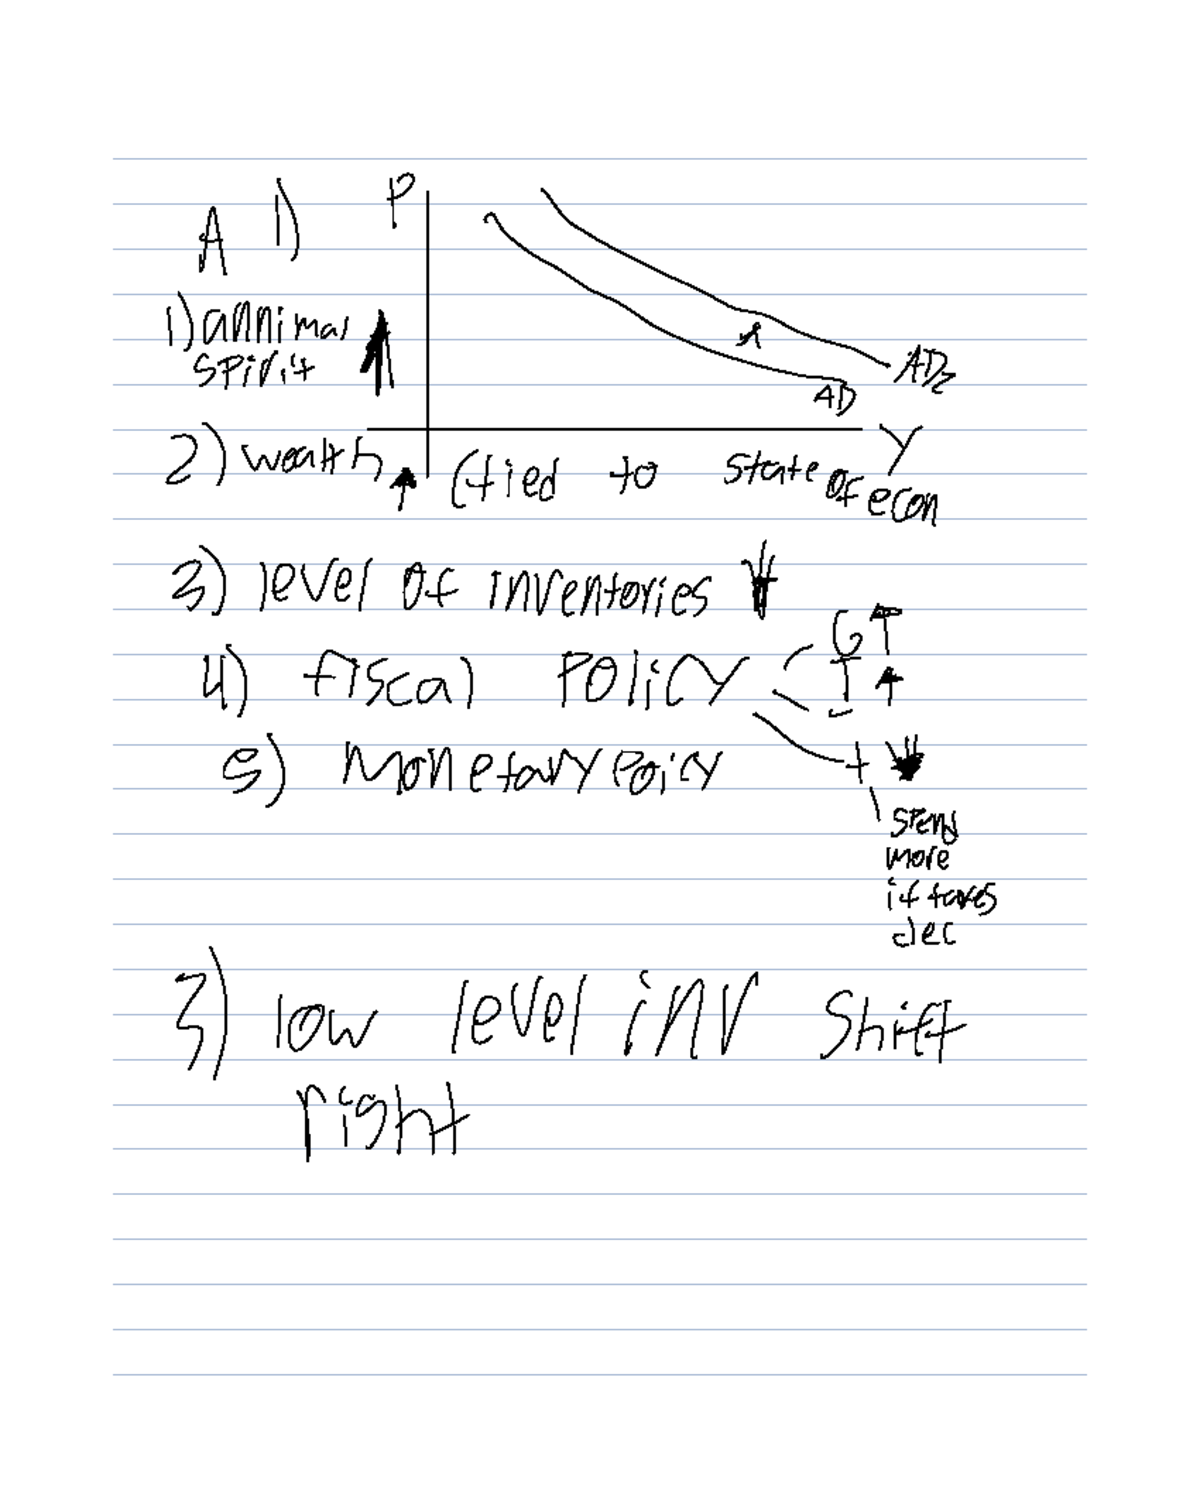 A 1)
P
1) annimal
spirit ↑
AD2
AD
Y
2) wealth ↑ (tied to state of econ
3) level of inventories ↓
G ↑
4) fiscal Policy I ↑
5) Monetary Poicy t ↓
spend
more
if taxes
dec
3) low level inv shift
right